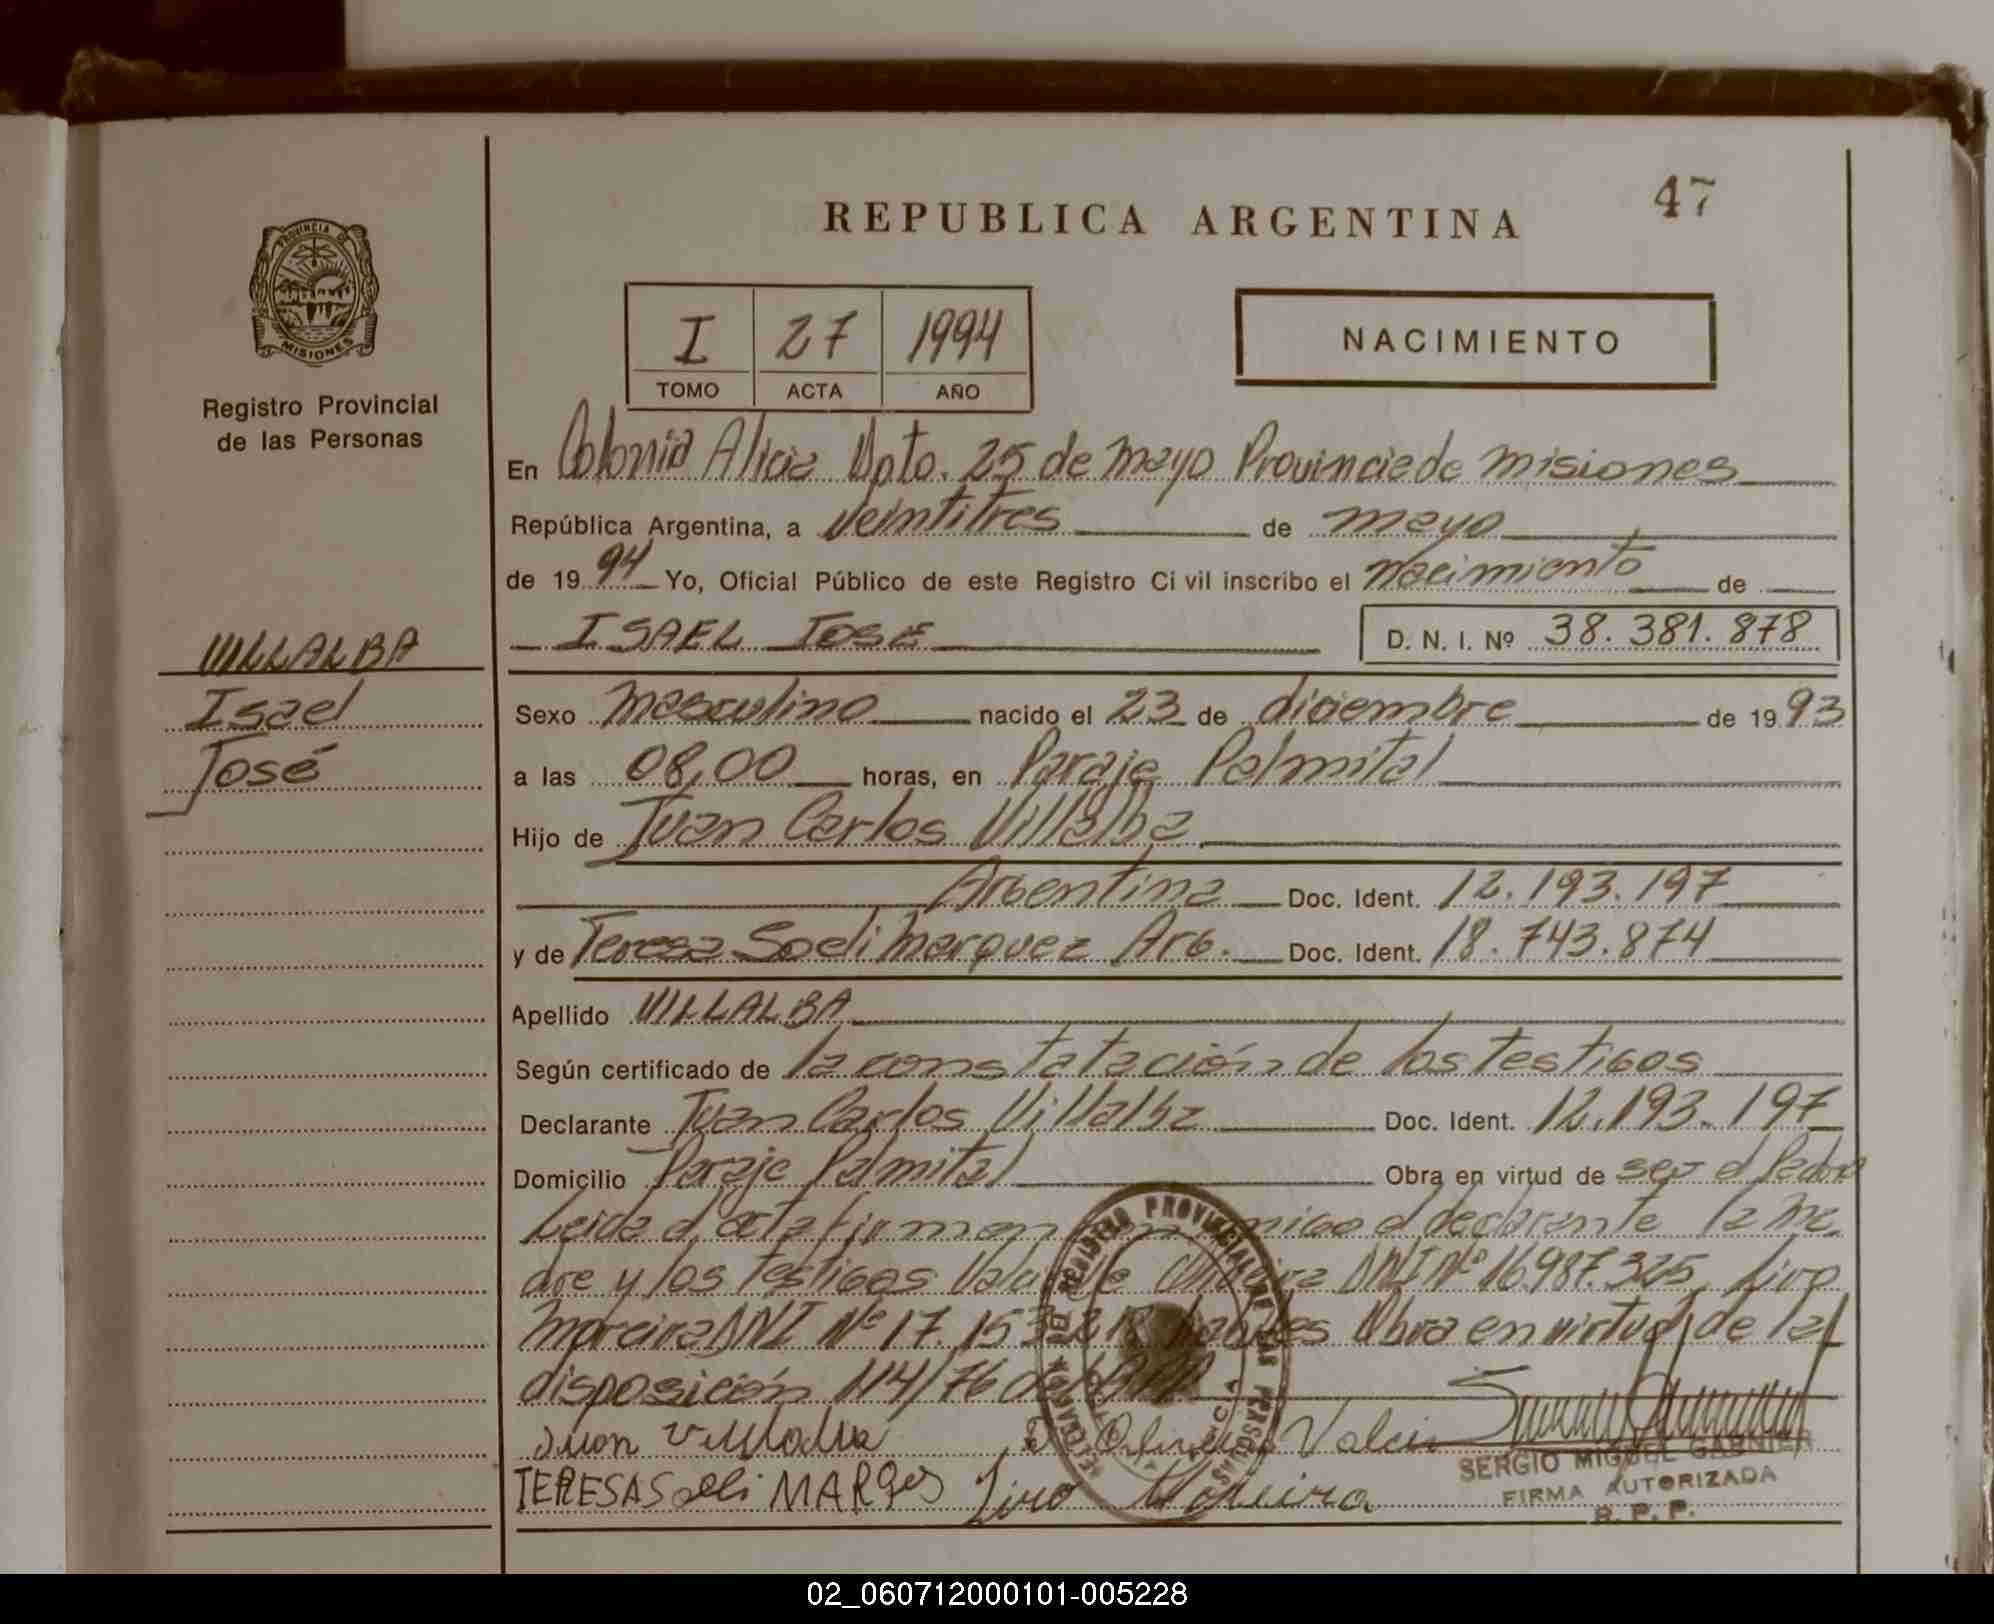 47
REPUBLICA ARGENTINA
PROVINCIA DE
MISIONES
Registro Provincial
de las Personas
I 27 1994
TOMO ACTA AÑO
NACIMIENTO
En Colonia Alicia Dpto. 25 de mayo Provincia de misiones
República Argentina, a veintitres de mayo
de 1994 Yo, Oficial Público de este Registro Civil inscribo el nacimiento de
ISAEL JOSE D. N. I. Nº 38.381.878
VILLALBA
Isael
José
Sexo masculino nacido el 23 de diciembre de 1993
a las 08,00 horas, en Paraje Palmital
Hijo de Juan Carlos Villalba
Argentina Doc. Ident. 12.193.197
y de Teresa Soeli Marquez Arg. Doc. Ident. 18.743.874
Apellido VILLALBA
Según certificado de la constatación de los testigos
Declarante Juan Carlos Villalba Doc. Ident. 12.193.197
Domicilio Paraje Palmital Obra en virtud de ser el Padre
Leida el acta firman el declarante la ma
dre y los testigos DNI Nº 16.987.325, Liro
Moreira DNI Nº 17.153. Obra en virtud de la
disposición 114/76
Juan Villalba
TERESA Soeli MARQES Liro Moreira
REGISTRO PROVINCIAL DE LAS PERSONAS
SERGIO MIGUEL GARNIER
FIRMA AUTORIZADA
R. P. P.
02_060712000101-005228